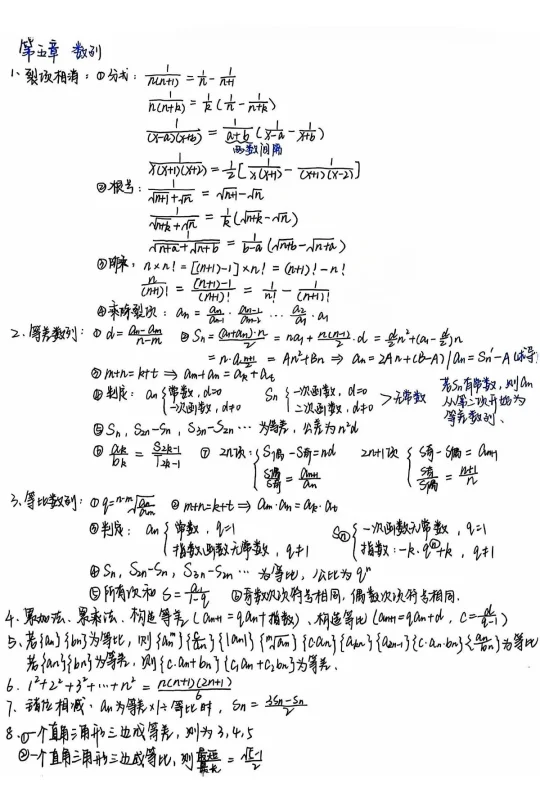 第五章 数列
1、裂项相消：①分式： 1/n(n+1) = 1/n - 1/(n+1)
1/n(n+k) = 1/k (1/n - 1/(n+k))
1/(x-a)(x+b) = 1/(a+b) (1/(x-a) - 1/(x+b))
两数间隔
1/x(x+1)(x+2) = 1/2 [1/x(x+1) - 1/(x+1)(x-2)]
②根号： 1/(√n+1 + √n) = √n+1 - √n
1/(√n+k + √n) = 1/k (√n+k - √n)
1/(√n+a + √n+b) = 1/(b-a) (√n+b - √n+a)
③阶乘： n×n! = [(n+1)-1]×n! = (n+1)! - n!
n/(n+1)! = [(n+1)-1]/(n+1)! = 1/n! - 1/(n+1)!
④ aₙ = aₙ/aₙ₋₁ · aₙ₋₁/aₙ₋₂ ... a₂/a₁ · a₁
2、等差数列：① d = (aₙ-aₘ)/(n-m) ② Sₙ = (a₁+aₙ)·n/2 = na₁ + n(n-1)/2 ·d = d/2 n² + (a₁-d/2)n
= n·aₙ₊₁/2 = An²+Bn ⇒ aₙ = 2An+(B-A) / aₙ = Sₙ'-A (求导)
③ m+n=k+t ⇒ aₘ+aₙ = aₖ+aₜ
④判定： aₙ { 常数，d=0 Sₙ { 一次函数，d=0 > 无常数 若Sₙ有常数，则aₙ
一次函数，d≠0 二次函数，d≠0 从第二项开始为
等差数列、
⑤ Sₙ, S₂ₙ-Sₙ, S₃ₙ-S₂ₙ … 为等差，公差为n²d
⑥ aₖ/bₖ = S₂ₖ₋₁/T₂ₖ₋₁ ⑦ 2n项： { S偶-S奇=nd 2n+1项 { S奇-S偶 = aₙ₊₁
S偶/S奇 = aₙ₊₁/aₙ S奇/S偶 = (n+1)/n
3、等比数列：① q = ⁿ⁻ᵐ√(aₙ/aₘ) ② m+n=k+t ⇒ aₘ·aₙ = aₖ·aₜ
③判定： aₙ { 常数，q=1 Sₙ { 一次函数无常数，q=1
指数函数无常数，q≠1 指数：-k·qⁿ+k，q≠1
④ Sₙ, S₂ₙ-Sₙ, S₃ₙ-S₂ₙ … 为等比，公比为qⁿ
⑤所有项和 S = a₁/(1-q) ⑥奇数次项符号相同，偶数次项符号相同.
4、累加法、累乘法、构造等差 (aₙ₊₁ = qaₙ+指数)、构造等比 (aₙ₊₁=qaₙ+d，c=d/(q-1))
5、若{aₙ}{bₙ}为等比，则{aₙᵐ}{c/aₙ}{|aₙ|}{ᵐ√aₙ}{c·aₙ}{a₂ₙ₋₁}{c·aₙ·bₙ}{aₙ/bₙ}为等比
若{aₙ}{bₙ}为等差，则{c·aₙ+bₙ}{c₁aₙ+c₂bₙ}为等差.
6、1²+2²+3²+…+n² = n(n+1)(2n+1)/6
7、错位相减、aₙ为等差×/÷等比时，Sₙ = (3Sₙ-Sₙ)/2
8、①一个直角三角形三边成等差，则为3,4,5
②一个直角三角形三边成等比，则最短/最长 = (√5-1)/2